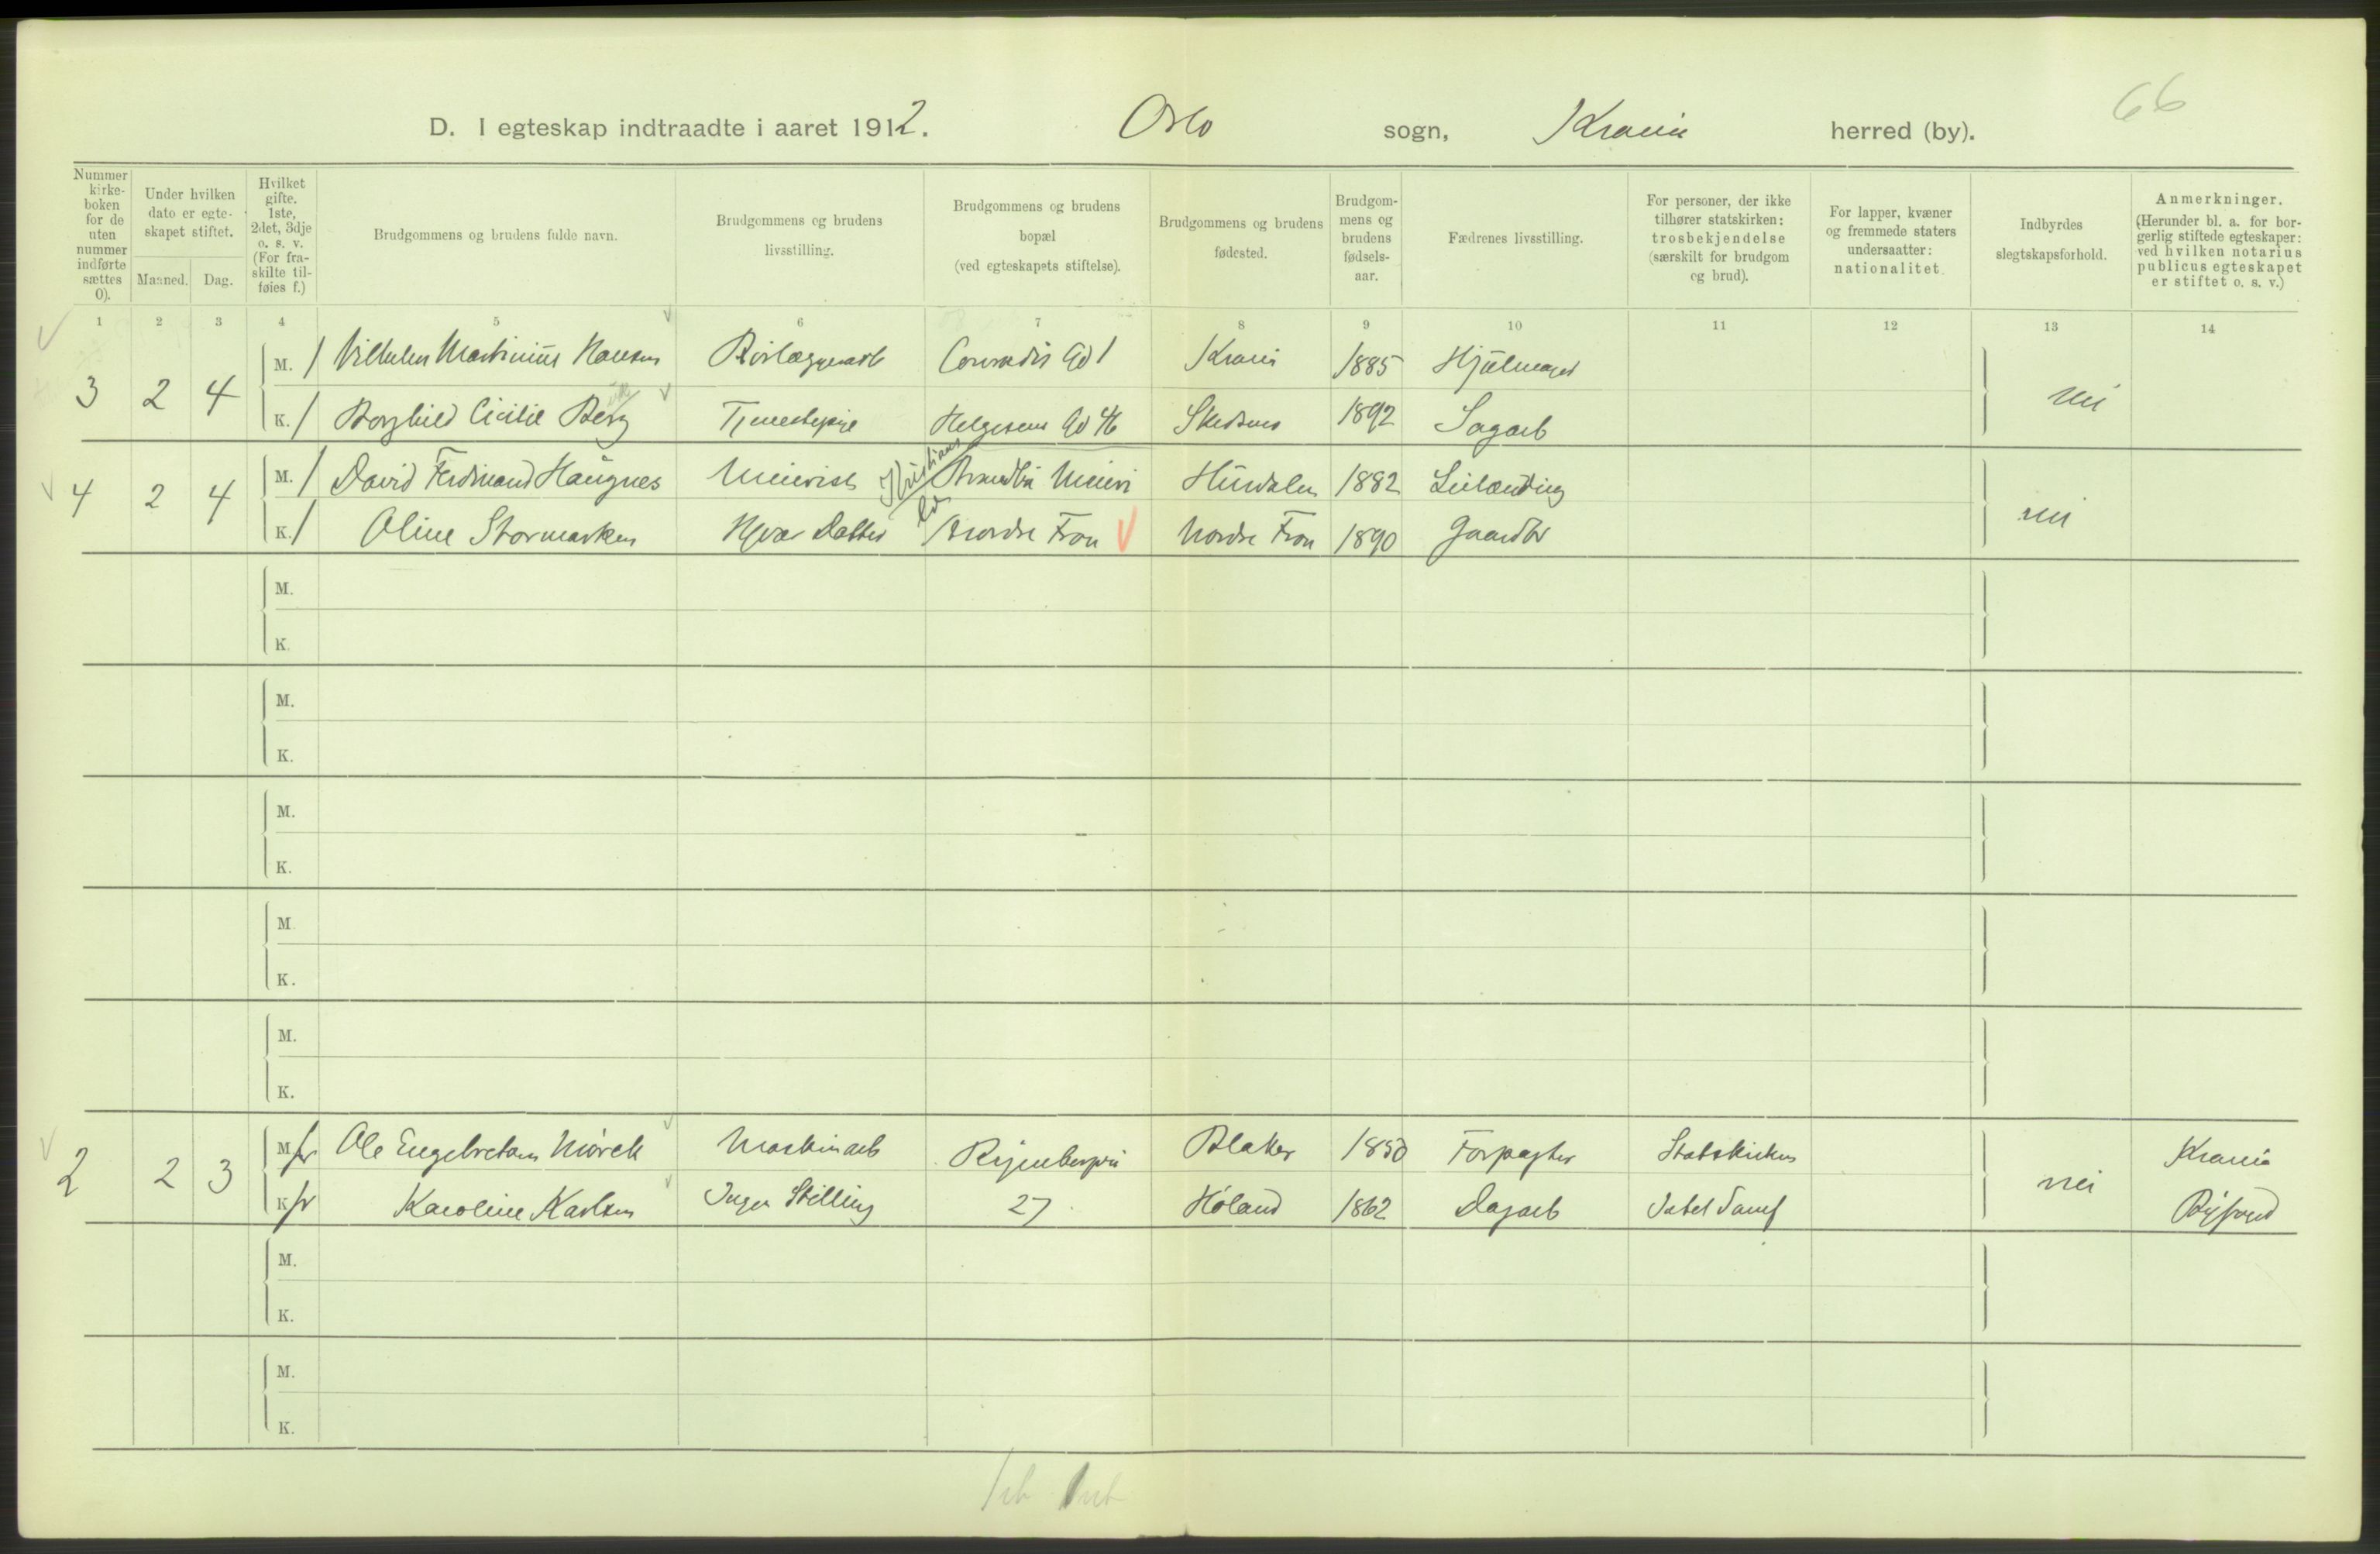 66
D. I egteskap indtraadte i aaret 1912. Oslo sogn, Krania herred (by).
Nummer kirke-boken for de uten nummer indførte sættes 0).
Under hvilken dato er egte-skapet stiftet.
Maaned. Dag.
Hvilket gifte. 1ste, 2det, 3dje o. s. v. (For fra-skilte til-føies f.)
Brudgommens og brudens fulde navn.
Brudgommens og brudens livsstilling.
Brudgommens og brudens bopæl (ved egteskapets stiftelse).
Brudgommens og brudens fødested.
Brudgom-mens og brudens fødsels-aar.
Fædrenes livsstilling.
For personer, der ikke tilhører statskirken: trosbekjendelse (særskilt for brudgom og brud).
For lapper, kvæner og fremmede staters undersaatter: nationalitet.
Indbyrdes slegtskapsforhold.
Anmerkninger. (Herunder bl. a. for bor-gerlig stiftede egteskaper: ved hvilken notarius publicus egteskapet er stiftet o. s. v.)
1 2 3 4 5 6 7 8 9 10 11 12 13 14
3 2 4 M. / Vilhelm Martinius Hansen Rørlæggerarb Conradis Gd 1 Krania 1885 Hjulmager nei
K. / Borghild Cicilie Berg Tjenestepige Helgesens Gd 46 Skedsmo 1892 Sagarb
4 2 4 M. / David Ferdinand Haugnes Meierist Kristians Meieri Hurdalen 1882 Leilending nei
K. / Oline Stormorken Hjvær Datter Nordre Fron Nordre Fron 1890 Gaardbr
M.
K.
M.
K.
M.
K.
M.
K.
M.
K.
2 2 3 M. fr Ole Engebretsen Mørch Maskinarb Blaker 1850 Forpagter Statskirken nei Krania
K. fr Karoline Karlsen Ingen Stilling 27 Høland 1862 Dagarb Byfoged
M.
K.
M.
K.